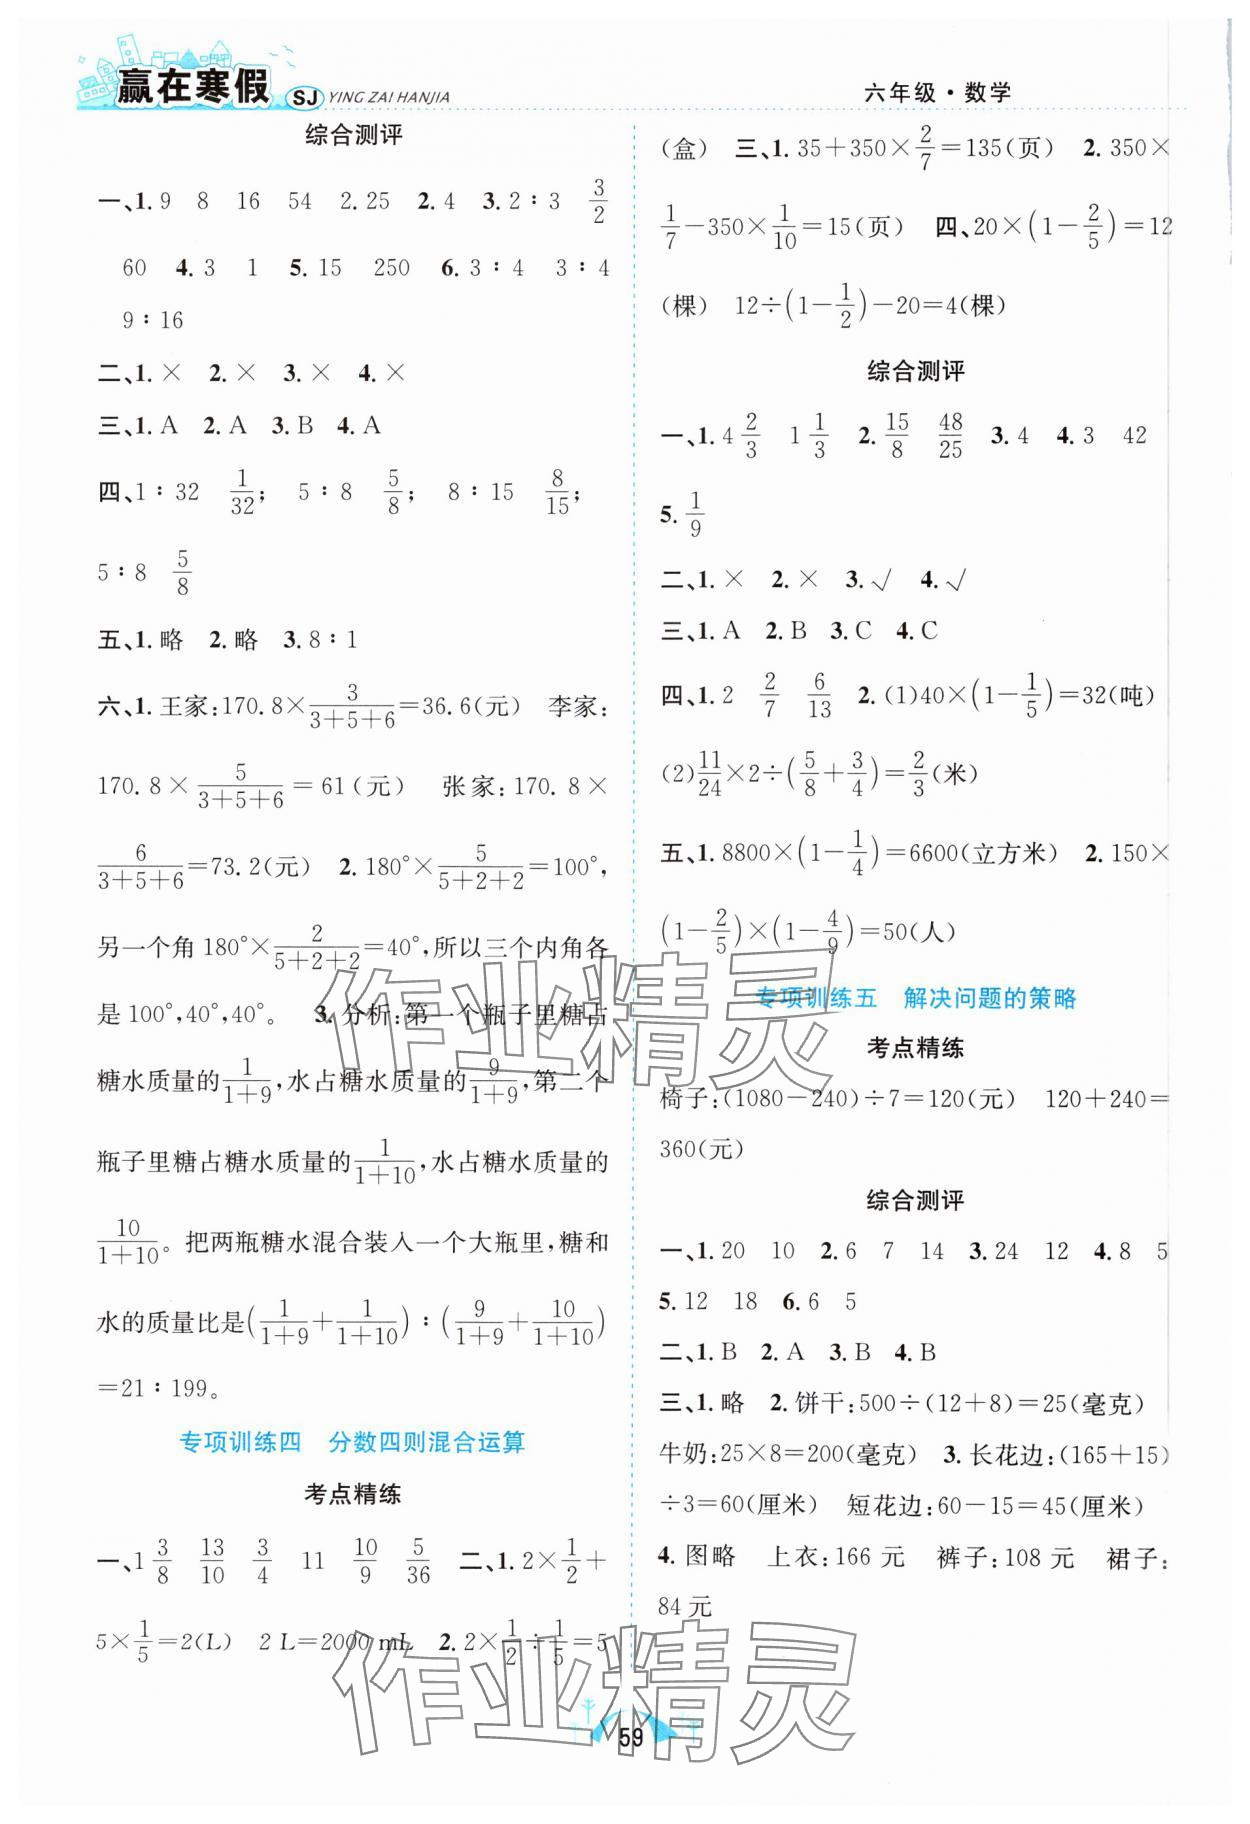 赢在寒假 SJ YING ZAI HANJIA
六年级·数学
综合测评
一、1. 9 8 16 54 2.25 2. 4 3. 2∶3 3/2
60 4. 3 1 5. 15 250 6. 3∶4 3∶4
9∶16
二、1. × 2. × 3. × 4. ×
三、1. A 2. A 3. B 4. A
四、1∶32 1/32; 5∶8 5/8; 8∶15 8/15;
5∶8 5/8
五、1. 略 2. 略 3. 8∶1
六、1. 王家:170.8×3/(3+5+6)=36.6(元) 李家:
170.8×5/(3+5+6)=61(元) 张家:170.8×
6/(3+5+6)=73.2(元) 2. 180°×5/(5+2+2)=100°,
另一个角180°×2/(5+2+2)=40°,所以三个内角各
是100°,40°,40°。 3. 分析:第一个瓶子里糖占
糖水质量的1/(1+9),水占糖水质量的9/(1+9),第二个
瓶子里糖占糖水质量的1/(1+10),水占糖水质量的
10/(1+10)。把两瓶糖水混合装入一个大瓶里,糖和
水的质量比是(1/(1+9)+1/(1+10))∶(9/(1+9)+10/(1+10))
=21∶199。
专项训练四 分数四则混合运算
考点精练
一、1 3/8 13/10 3/4 11 10/9 5/36 二、1. 2×1/2+
5×1/5=2(L) 2 L=2000 mL 2. 2×1/2÷1/5=5
(盒) 三、1. 35+350×2/7=135(页) 2. 350×
1/7-350×1/10=15(页) 四、20×(1-2/5)=12
(棵) 12÷(1-1/2)-20=4(棵)
综合测评
一、1. 4 2/3 1 1/3 2. 15/8 48/25 3. 4 4. 3 42
5. 1/9
二、1. × 2. × 3. √ 4. √
三、1. A 2. B 3. C 4. C
四、1. 2 2/7 6/13 2. (1)40×(1-1/5)=32(吨)
(2)11/24×2÷(5/8+3/4)=2/3(米)
五、1. 8800×(1-1/4)=6600(立方米) 2. 150×
(1-2/5)×(1-4/9)=50(人)
专项训练五 解决问题的策略
考点精练
椅子:(1080-240)÷7=120(元) 120+240=
360(元)
综合测评
一、1. 20 10 2. 6 7 14 3. 24 12 4. 8 5
5. 12 18 6. 6 5
二、1. B 2. A 3. B 4. B
三、1. 略 2. 饼干:500÷(12+8)=25(毫克)
牛奶:25×8=200(毫克) 3. 长花边:(165+15)
÷3=60(厘米) 短花边:60-15=45(厘米)
4. 图略 上衣:166元 裤子:108元 裙子:
84元
作业精灵
作业精灵
59